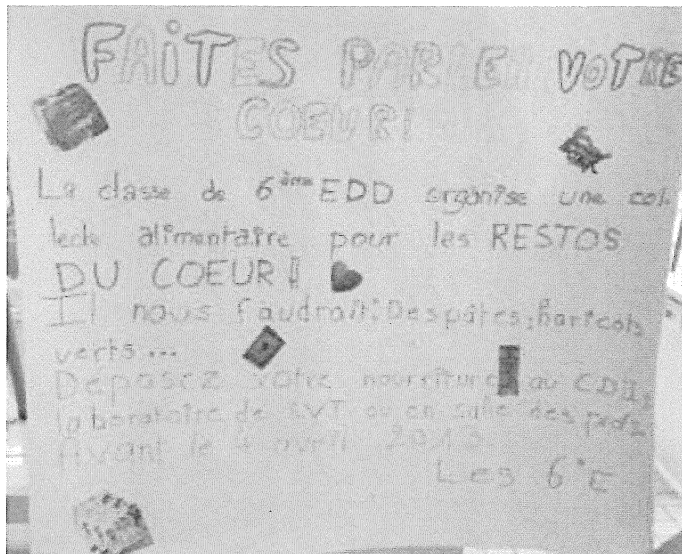 FAITES PARLER VOTRE
COEUR!
La classe de 6ème EDD organise une col-
lecte alimentaire pour les RESTOS
DU COEUR!
Il nous faudrait: Des pâtes, haricots
verts...
Déposez votre nourriture au CDI,
laboratoire de SVT ou en salle des profs
Avant le 4 avril 2013.
Les 6°E